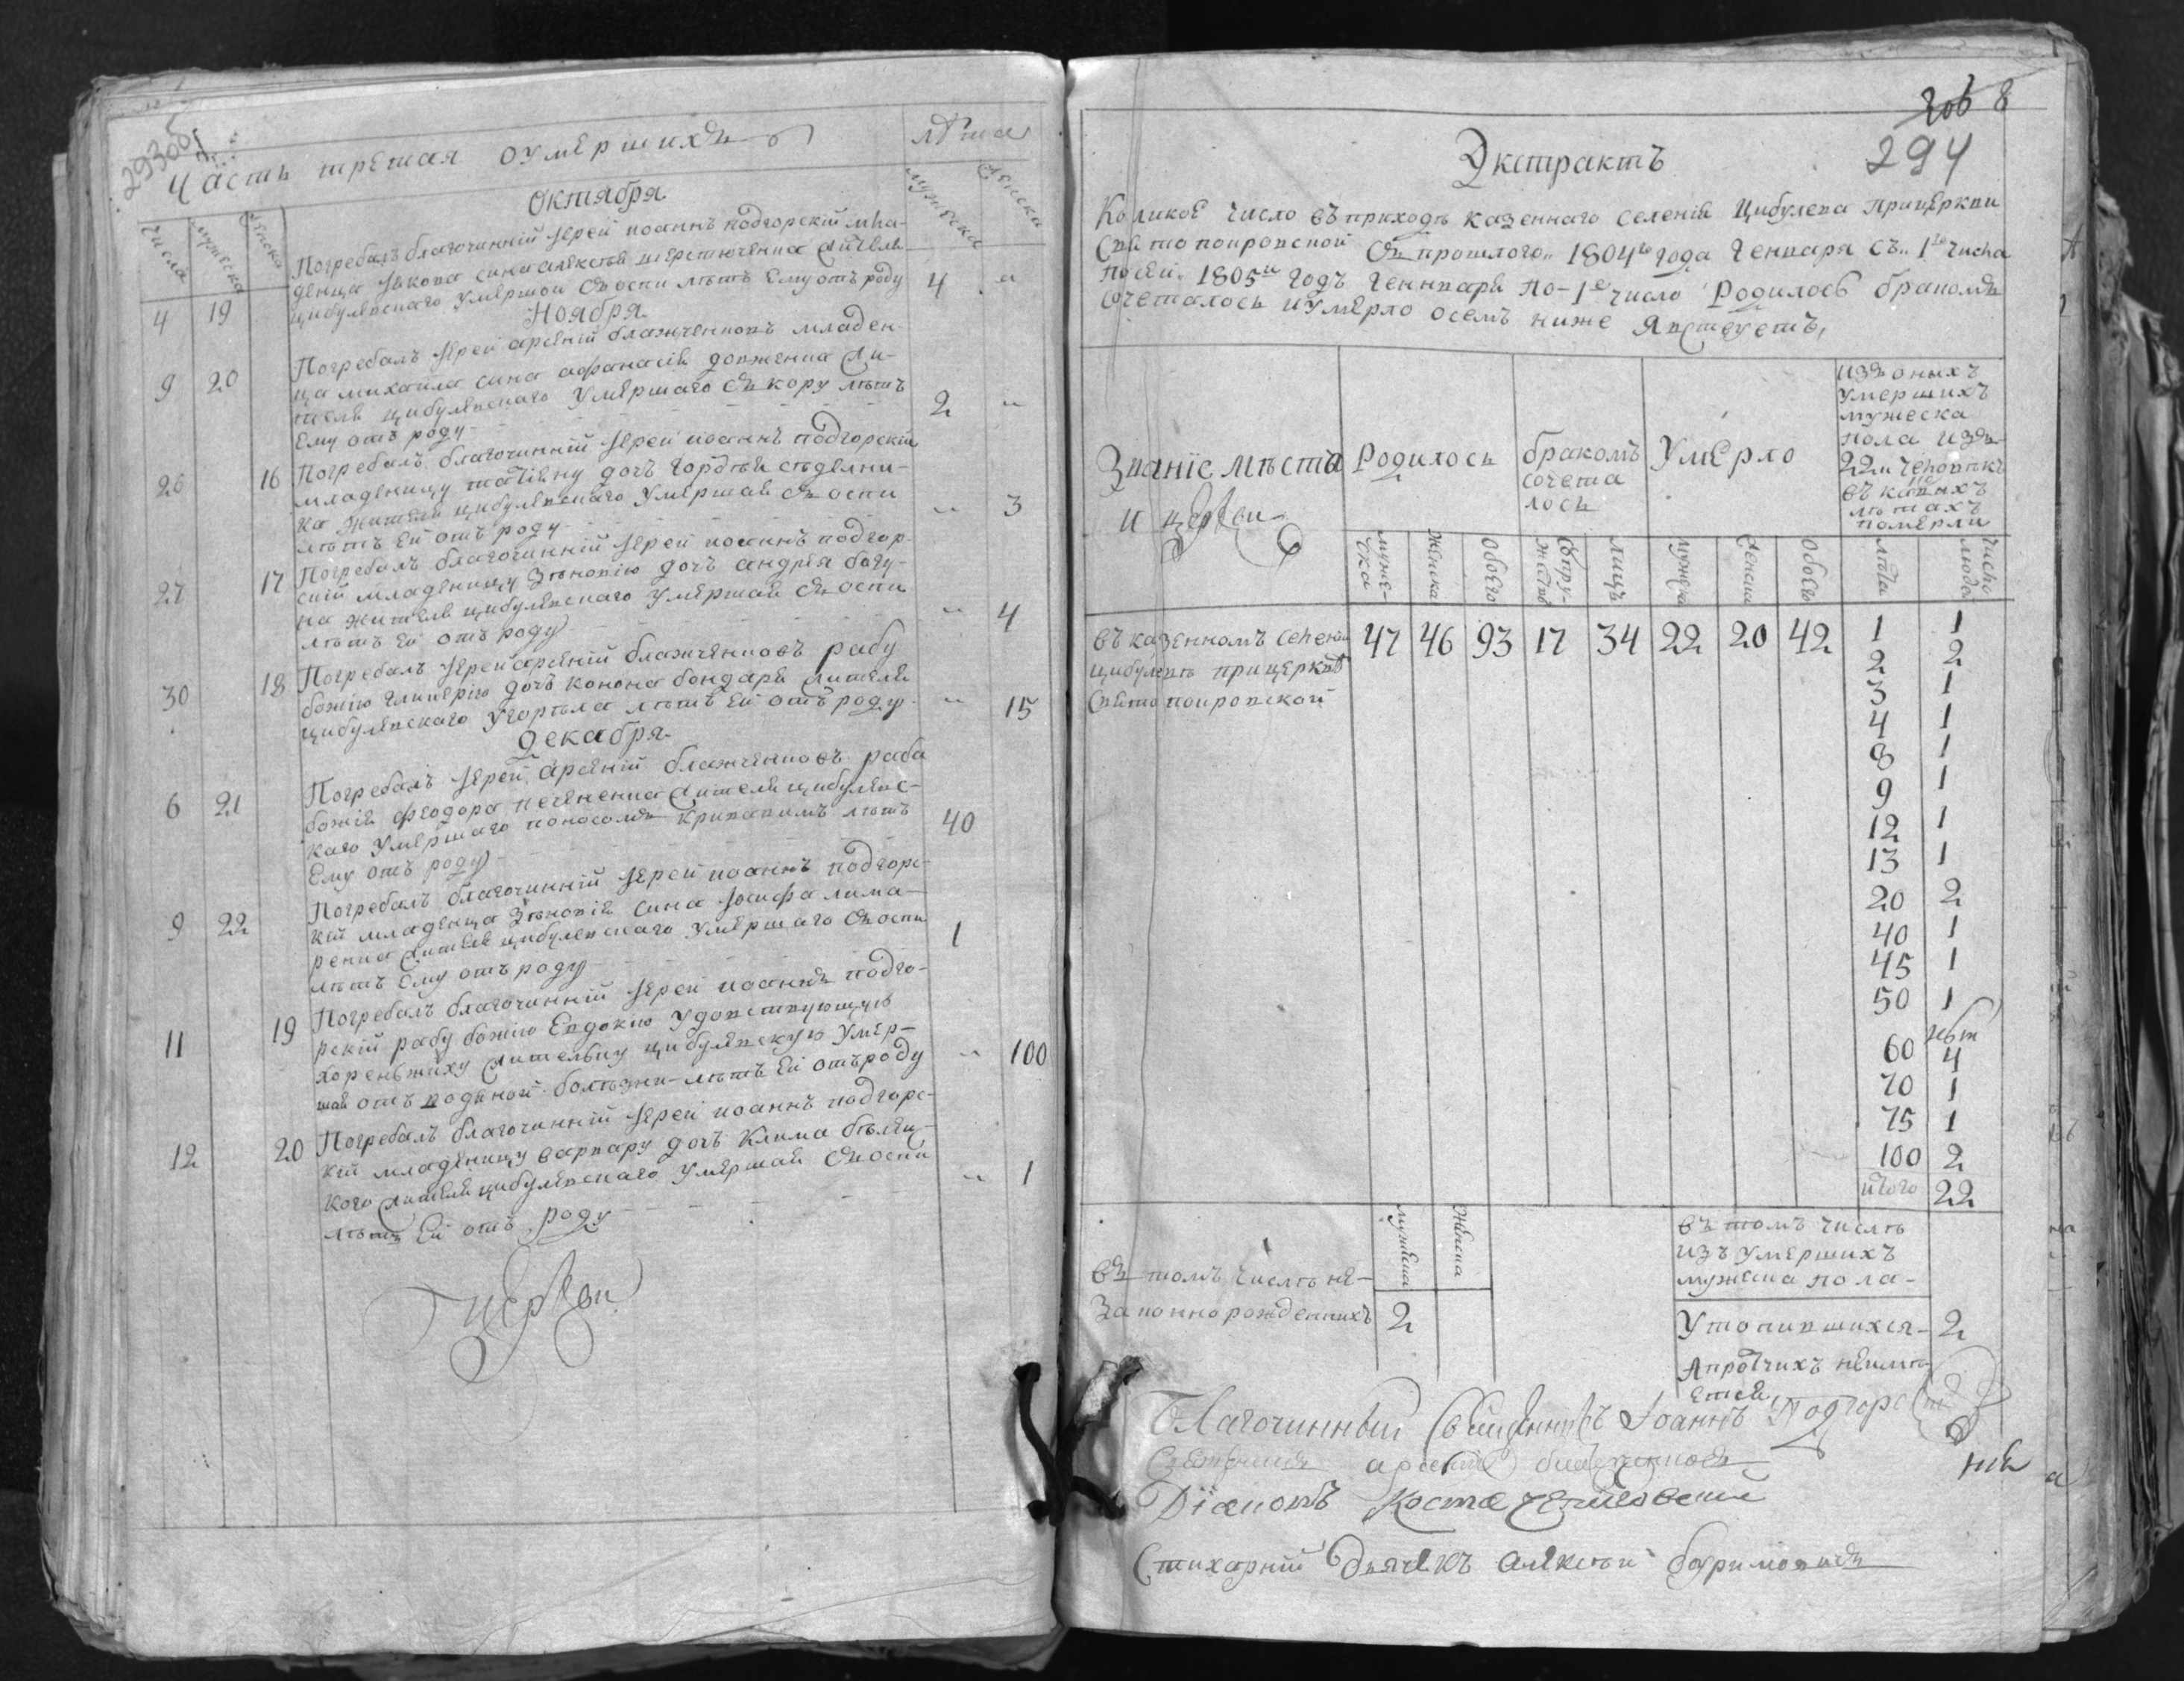 293об
Часть третая оумершихъ
лѣта
числа
мужеска
женска
мужеска
женска
Октября
4 19 Погребалъ благочинній Іерей иоаннъ подгорскій мла-
денца Якова сина алексѣя жителя
цибулевскаго умершои отъ оспи лѣтъ Ему отъ роду 4 "
Ноября
9 20 Погребалъ Іерей арсеній блажченковъ младен-
ца михаила сина афанасія довженка жи-
теля цибулевскаго умершаго отъ кору лѣтъ
Ему отъ роду 2 "
26 16 Погребалъ благочинній Іерей иоаннъ подгорскій
младеницу татіяну дочъ гордѣя
ка жителя цибулевскаго умершая отъ оспи
лѣтъ Ей отъ роду " 3
27 17 Погребалъ благочинній Іерей иоаннъ подгор-
скій младеницу зѣновію дочъ андрея богу-
на жителя цибулевскаго умершая отъ оспи
лѣтъ Ей отъ роду " 4
30 18 Погребалъ Іерей арсеній блажченковъ рабу
божію гликерію дочъ конона бондаря жителя
цибулевскаго угорѣла лѣтъ Ей отъ роду " 15
Декабря
6 21 Погребалъ Іерей арсеній блажченковъ раба
божія феодора жителя цибулевс-
каго умершаго поносомъ крпавимъ лѣтъ
Ему отъ роду 40
9 22 Погребалъ благочинній Іерей иоаннъ подгорс-
кій младенца зѣновія сина Іосифа лима-
ренка жителя цибулевскаго умершаго отъ оспи
лѣтъ Ему отъ роду 1
11 19 Погребалъ благочинній Іерей иоаннъ подго-
рскій рабу божію Евдокію удовствующую
хоренжиху жителку цибулевскую умер-
шая отъ водяной болѣзни лѣтъ Ей отъ роду " 100
12 20 Погребалъ благочинній Іерей иоаннъ подгорс-
кій младеницу варвару дочъ Клима бѣлец-
кого жителя цибулевскаго умершая отъ оспи
лѣтъ Ей отъ роду " 1
церкви
8
294
Экстрактъ
Коликое число въ приходѣ казеннаго селенія Цибулева прицеркви
Святопокровской отъ прошлого 1804го года Генваря съ 1го числа
посей 1805й годъ Геннваря по 1е число Родилось бракомъ
сочеталось и умерло осемъ ниже явствуетъ,
Званіе мѣста
и церкви
Родилось
бракомъ
сочета
лось
Умерло
изъ оныхъ
умершихъ
мужеска
пола изъ
22и человѣкъ
въ какихъ
лѣтахъ
померли
муже-
ска
женска
обоего
супру-
жествъ
лицъ
мужеска
женска
обоего
лѣта
число
людей
въ казенномъ селеніи
цибулевѣ прицеркви
Святопокровской
47 46 93 17 34 22 20 42
1 1
2 2
3 1
4 1
8 1
9 1
12 1
13 1
20 2
40 1
45 1
50 1
60 4
70 1
75 1
100 2
итого 22
мужеска
женска
въ томъ числѣ не-
законнорожденнихъ 2
въ томъ числѣ
изъ умершихъ
мужеска пола
Утопившихся 2
А протчихъ неимѣ
ется
Благочинный Священникъ Іоаннъ Подгорскій
Священникъ арсеній блажченковъ
Діаконъ Коста
Стихарній Дьячекъ алексѣй